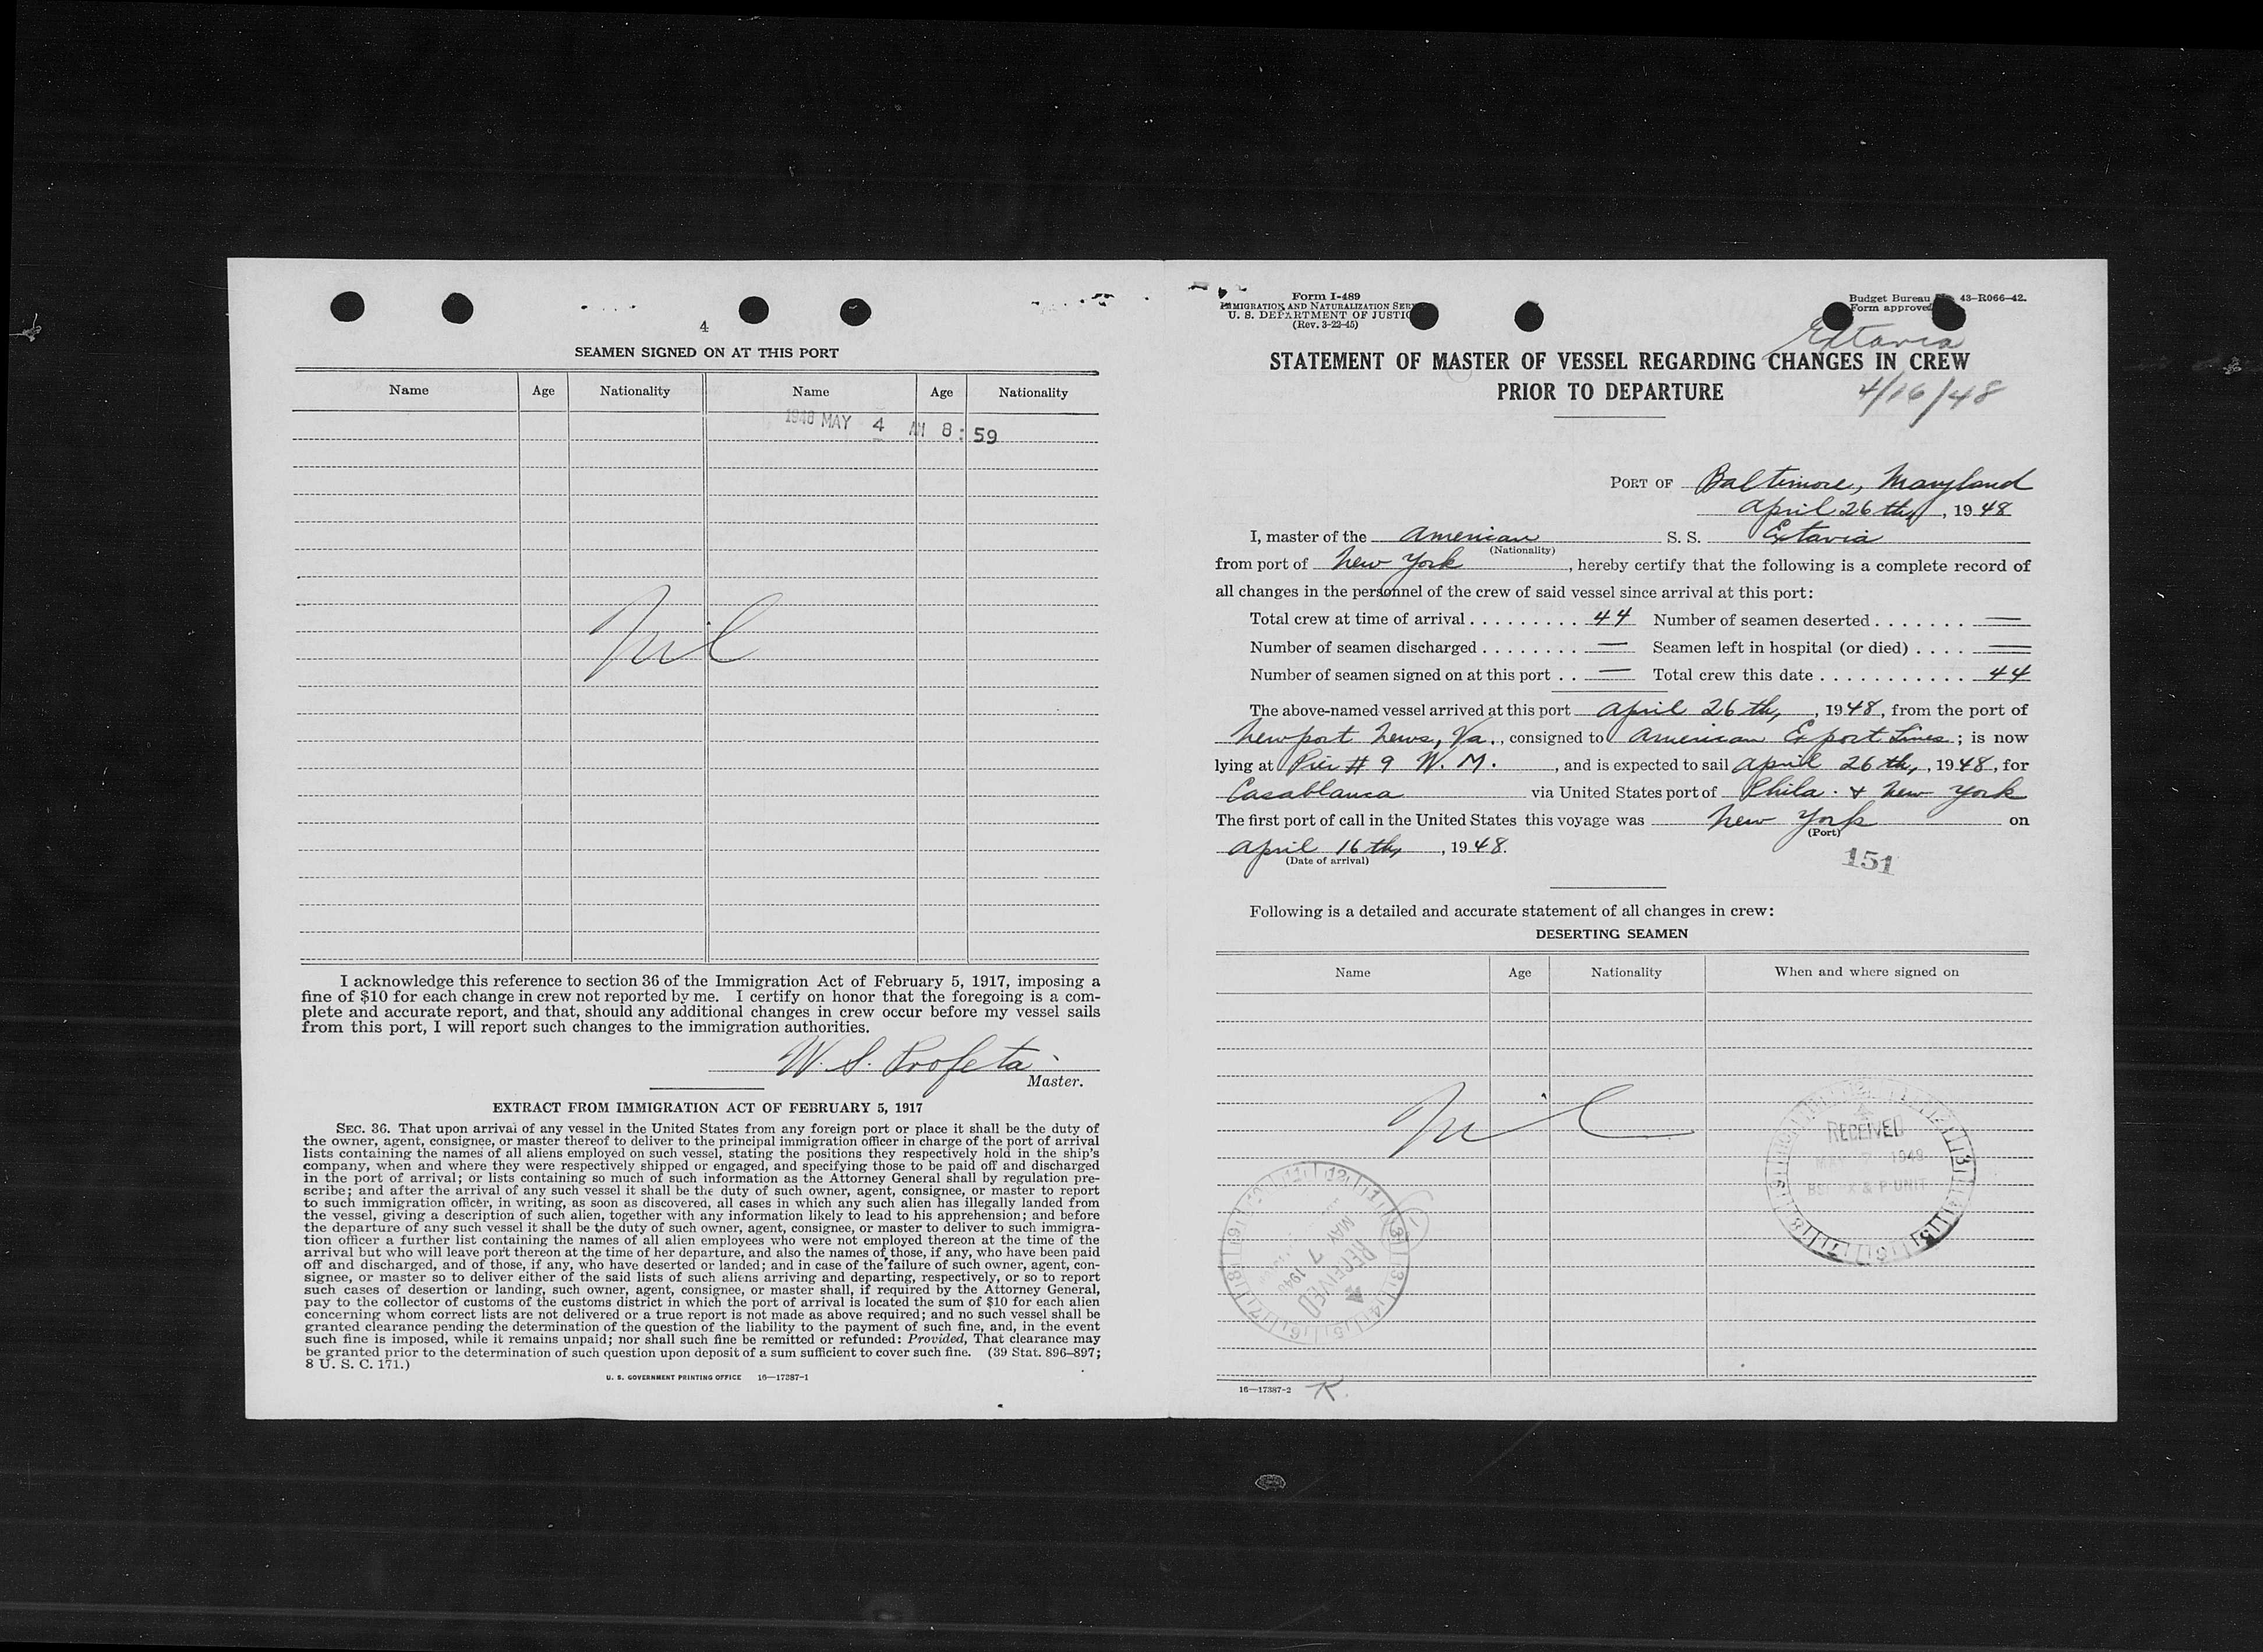 4
SEAMEN SIGNED ON AT THIS PORT
Name Age Nationality Name Age Nationality
1948 MAY 4 AM 8:59
Nil
I acknowledge this reference to section 36 of the Immigration Act of February 5, 1917, imposing a
fine of $10 for each change in crew not reported by me. I certify on honor that the foregoing is a com-
plete and accurate report, and that, should any additional changes in crew occur before my vessel sails
from this port, I will report such changes to the immigration authorities.
W. S. Profeta
Master.
EXTRACT FROM IMMIGRATION ACT OF FEBRUARY 5, 1917
SEC. 36. That upon arrival of any vessel in the United States from any foreign port or place it shall be the duty of
the owner, agent, consignee, or master thereof to deliver to the principal immigration officer in charge of the port of arrival
lists containing the names of all aliens employed on such vessel, stating the positions they respectively hold in the ship's
company, when and where they were respectively shipped or engaged, and specifying those to be paid off and discharged
in the port of arrival; or lists containing so much of such information as the Attorney General shall by regulation pre-
scribe; and after the arrival of any such vessel it shall be the duty of such owner, agent, consignee, or master to report
to such immigration officer, in writing, as soon as discovered, all cases in which any such alien has illegally landed from
the vessel, giving a description of such alien, together with any information likely to lead to his apprehension; and before
the departure of any such vessel it shall be the duty of such owner, agent, consignee, or master to deliver to such immigra-
tion officer a further list containing the names of all alien employees who were not employed thereon at the time of the
arrival but who will leave port thereon at the time of her departure, and also the names of those, if any, who have been paid
off and discharged, and of those, if any, who have deserted or landed; and in case of the failure of such owner, agent, con-
signee, or master so to deliver either of the said lists of such aliens arriving and departing, respectively, or so to report
such cases of desertion or landing, such owner, agent, consignee, or master shall, if required by the Attorney General,
pay to the collector of customs of the customs district in which the port of arrival is located the sum of $10 for each alien
concerning whom correct lists are not delivered or a true report is not made as above required; and no such vessel shall be
granted clearance pending the determination of the question of the liability to the payment of such fine, and, in the event
such fine is imposed, while it remains unpaid; nor shall such fine be remitted or refunded: Provided, That clearance may
be granted prior to the determination of such question upon deposit of a sum sufficient to cover such fine. (39 Stat. 896–897;
8 U. S. C. 171.)
U. S. GOVERNMENT PRINTING OFFICE 16—17387-1
Form I-489
IMMIGRATION AND NATURALIZATION
U. S. DEPARTMENT OF JUSTICE
(Rev. 3-22-45)
Budget Bureau 43-R066-42.
Form approved
Extavia
STATEMENT OF MASTER OF VESSEL REGARDING CHANGES IN CREW
PRIOR TO DEPARTURE
4/16/48
PORT OF Baltimore, Maryland
April 26th, 1948
I, master of the American S. S. Extavia
(Nationality)
from port of New York, hereby certify that the following is a complete record of
all changes in the personnel of the crew of said vessel since arrival at this port:
Total crew at time of arrival . . . . . . . . . 44 Number of seamen deserted . . . . . . . —
Number of seamen discharged . . . . . . . . — Seamen left in hospital (or died) . . . . —
Number of seamen signed on at this port . . — Total crew this date . . . . . . . . . . . 44
The above-named vessel arrived at this port April 26th, 1948, from the port of
Newport News, Va., consigned to American Export Lines; is now
lying at Pier # 9 W. M., and is expected to sail April 26th, 1948, for
Casablanca via United States port of Phila. & New York
The first port of call in the United States this voyage was New York on
(Port)
April 16th, 1948.
(Date of arrival)
151
Following is a detailed and accurate statement of all changes in crew:
DESERTING SEAMEN
Name Age Nationality When and where signed on
Nil
RECEIVED
MAY 7 1948
& P UNIT
RECEIVED
MAY 7 1948
16—17387-2 K.